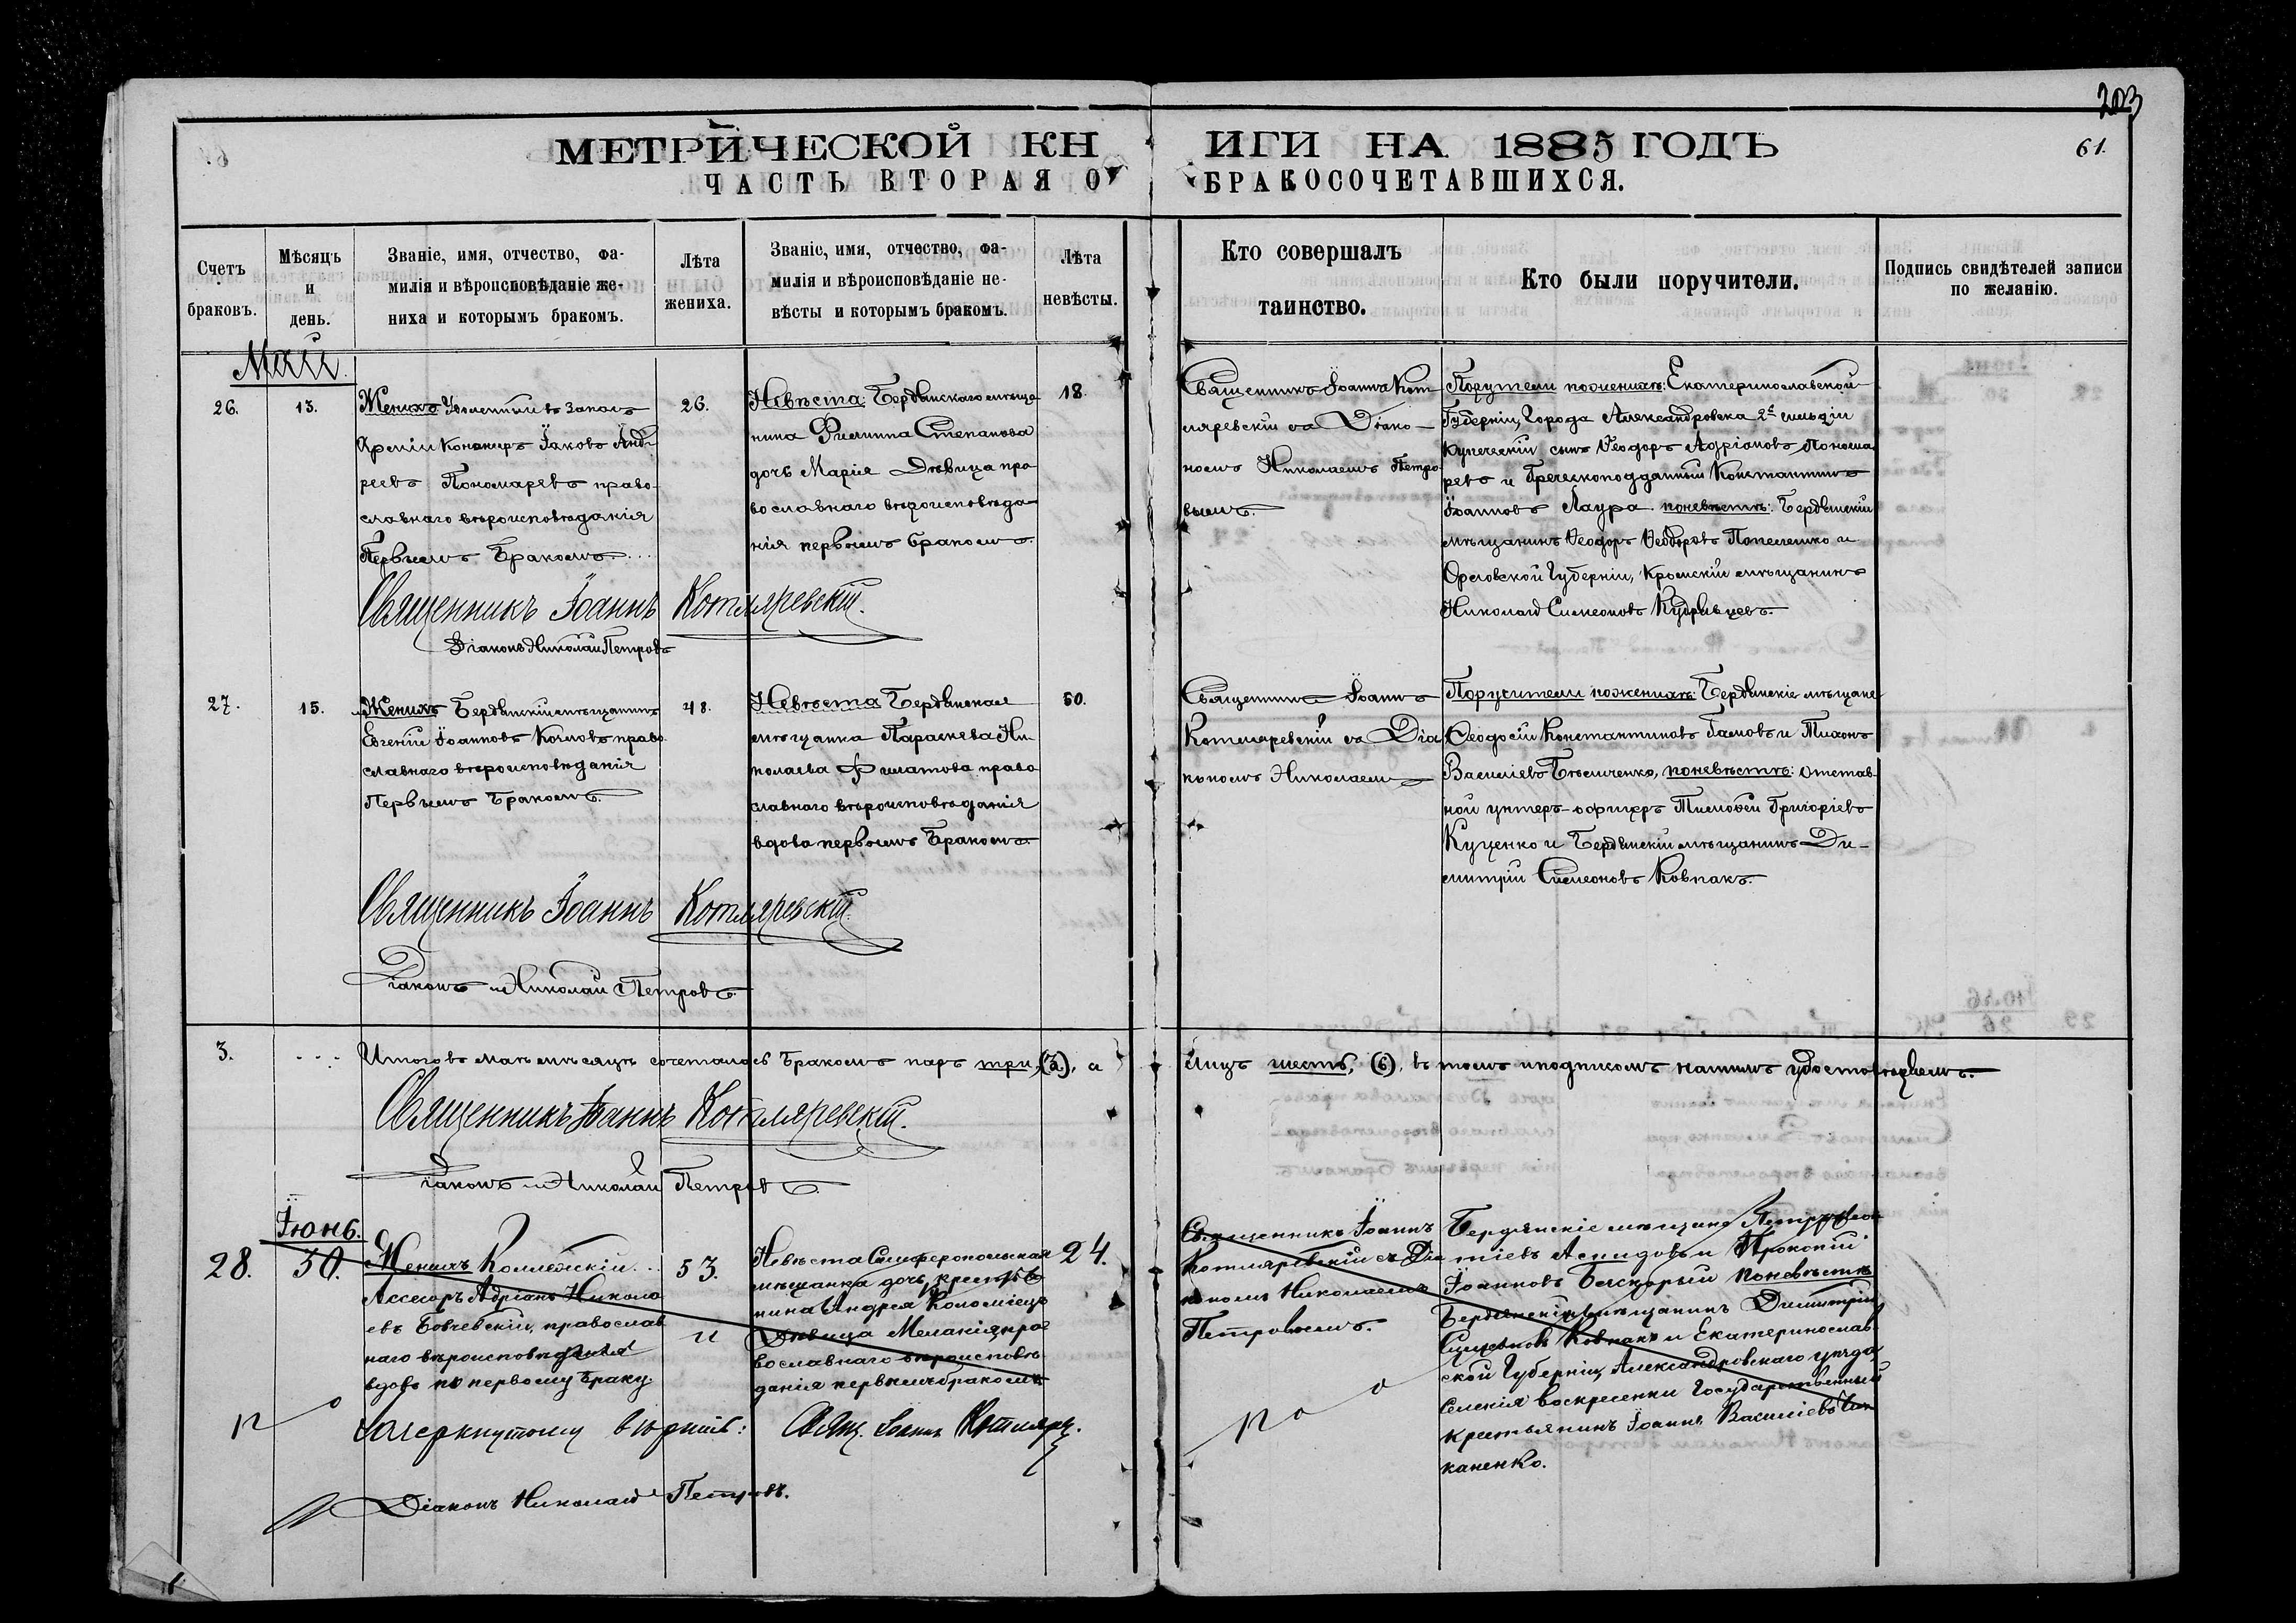 203
МЕТРИЧЕСКОЙ КНИГИ НА 1885 ГОДЪ
61.
ЧАСТЬ ВТОРАЯ О БРАКОСОЧЕТАВШИХСЯ.
Счетъ браковъ.
Мѣсяцъ и день.
Званіе, имя, отчество, фа-
милія и вѣроисповѣданіе же-
ниха и которымъ бракомъ.
Лѣта жениха.
Званіе, имя, отчество, фа-
милія и вѣроисповѣданіе не-
вѣсты и которымъ бракомъ.
Лѣта невѣсты.
Кто совершалъ
таинство.
Кто были поручители.
Подпись свидѣтелей записи
по желанію.
Май.
26.
13.
Женихъ Уволенный въ запасъ
Арміи Канониръ Іаковъ Анд-
реевъ Пономаревъ право-
славнаго вѣроисповѣданія
Первымъ Бракомъ.
26.
Невѣста: Бердянскаго мѣща-
нина Филиппа Степанова
дочь Марія Дѣвица пра-
вославнаго вѣроисповѣда-
нія первымъ бракомъ.
18.
Священникъ Іоаннъ Кот-
ляревскій съ Діако-
номъ Николаемъ Петро-
вымъ.
Поручтели поженихѣ: Екатеринославской
Губерніи, Города Александровска 2й гильдіи
Купеческій сынъ Ѳеодоръ Адріановъ Понома-
ревъ и Греческоподданный Константинъ
Іоанновъ Лаура. поневѣстѣ: Бердянскій
мѣщанинъ Ѳеодоръ Ѳеодоровъ Попеленко и
Орловской Губерніи, Кромскій мѣщанинъ
Николай Симеоновъ Кудрявцевъ.
Священникъ Іоаннъ Котляревскій.
Діаконъ Николай Петровъ
27.
15.
Женихъ Бердянскій мѣщанинъ
Евгеній Іоанновъ Козловъ право-
славнаго вѣроисповѣданія
Первымъ Бракомъ.
48.
Невѣста Бердянская
мѣщанка Параскева Ни-
колаева Филатова право-
славнаго вѣроисповѣданія
вдова первымъ Бракомъ.
50.
Священникъ Іоаннъ
Котляревскій съ Діа-
кономъ Николаемъ
Поручители поженихѣ: Бердянскіе мѣщане
Ѳеодосій Константиновъ Гамовъ и Тихонъ
Василіевъ Бѣличенко, поневѣстѣ: отстав-
ной унтеръ-офицеръ Тимоѳей Григоріевъ
Куценко и Бердянскій мѣщанинъ Ди-
митрій Симеоновъ Ковпакъ.
Священникъ Іоаннъ Котляревскій.
Діаконъ Николай Петровъ.
3.
Итого въ маѣ мѣсяцѣ сочеталось Бракомъ паръ три, (3), а лицъ шесть, (6), въ томъ иподписомъ нашимъ удостовѣряемъ.
Священникъ Іоаннъ Котляревскій.
Діаконъ Николай Петровъ.
Іюнь.
28.
30.
Женихъ Коллежскій
Ассесоръ Адріанъ Никола-
евъ Бовчевскій, православ
наго вѣроисповѣданія
вдовъ по первому Браку.
53.
и
Невѣста Симферопольская
мѣщанка дочь, крестья
нина Андрея Коломіеца
Дѣвица Меланія, пра-
вославнаго вѣроисповѣ-
данія первымъ бракомъ
24.
Священникъ Іоаннъ
Котляревскій съ Діа
кономъ Николаемъ
Петровымъ.
Бердянскіе мѣщане Петръ
Аспидовъ и Прокопій
Іоанновъ Бескорый поневѣстѣ
Бердянскій мѣщанинъ Димитрій
Симеоновъ Ковпакъ и Екатеринослав-
ской Губерніи, Александровскаго уѣзда,
Селенія Воскресенки Государственный
крестьянинъ Іоаннъ Василіевъ
каненко.
Зачеркнутому вѣрить: Свящ. Іоаннъ Котляр.
Діаконъ Николай Петровъ.